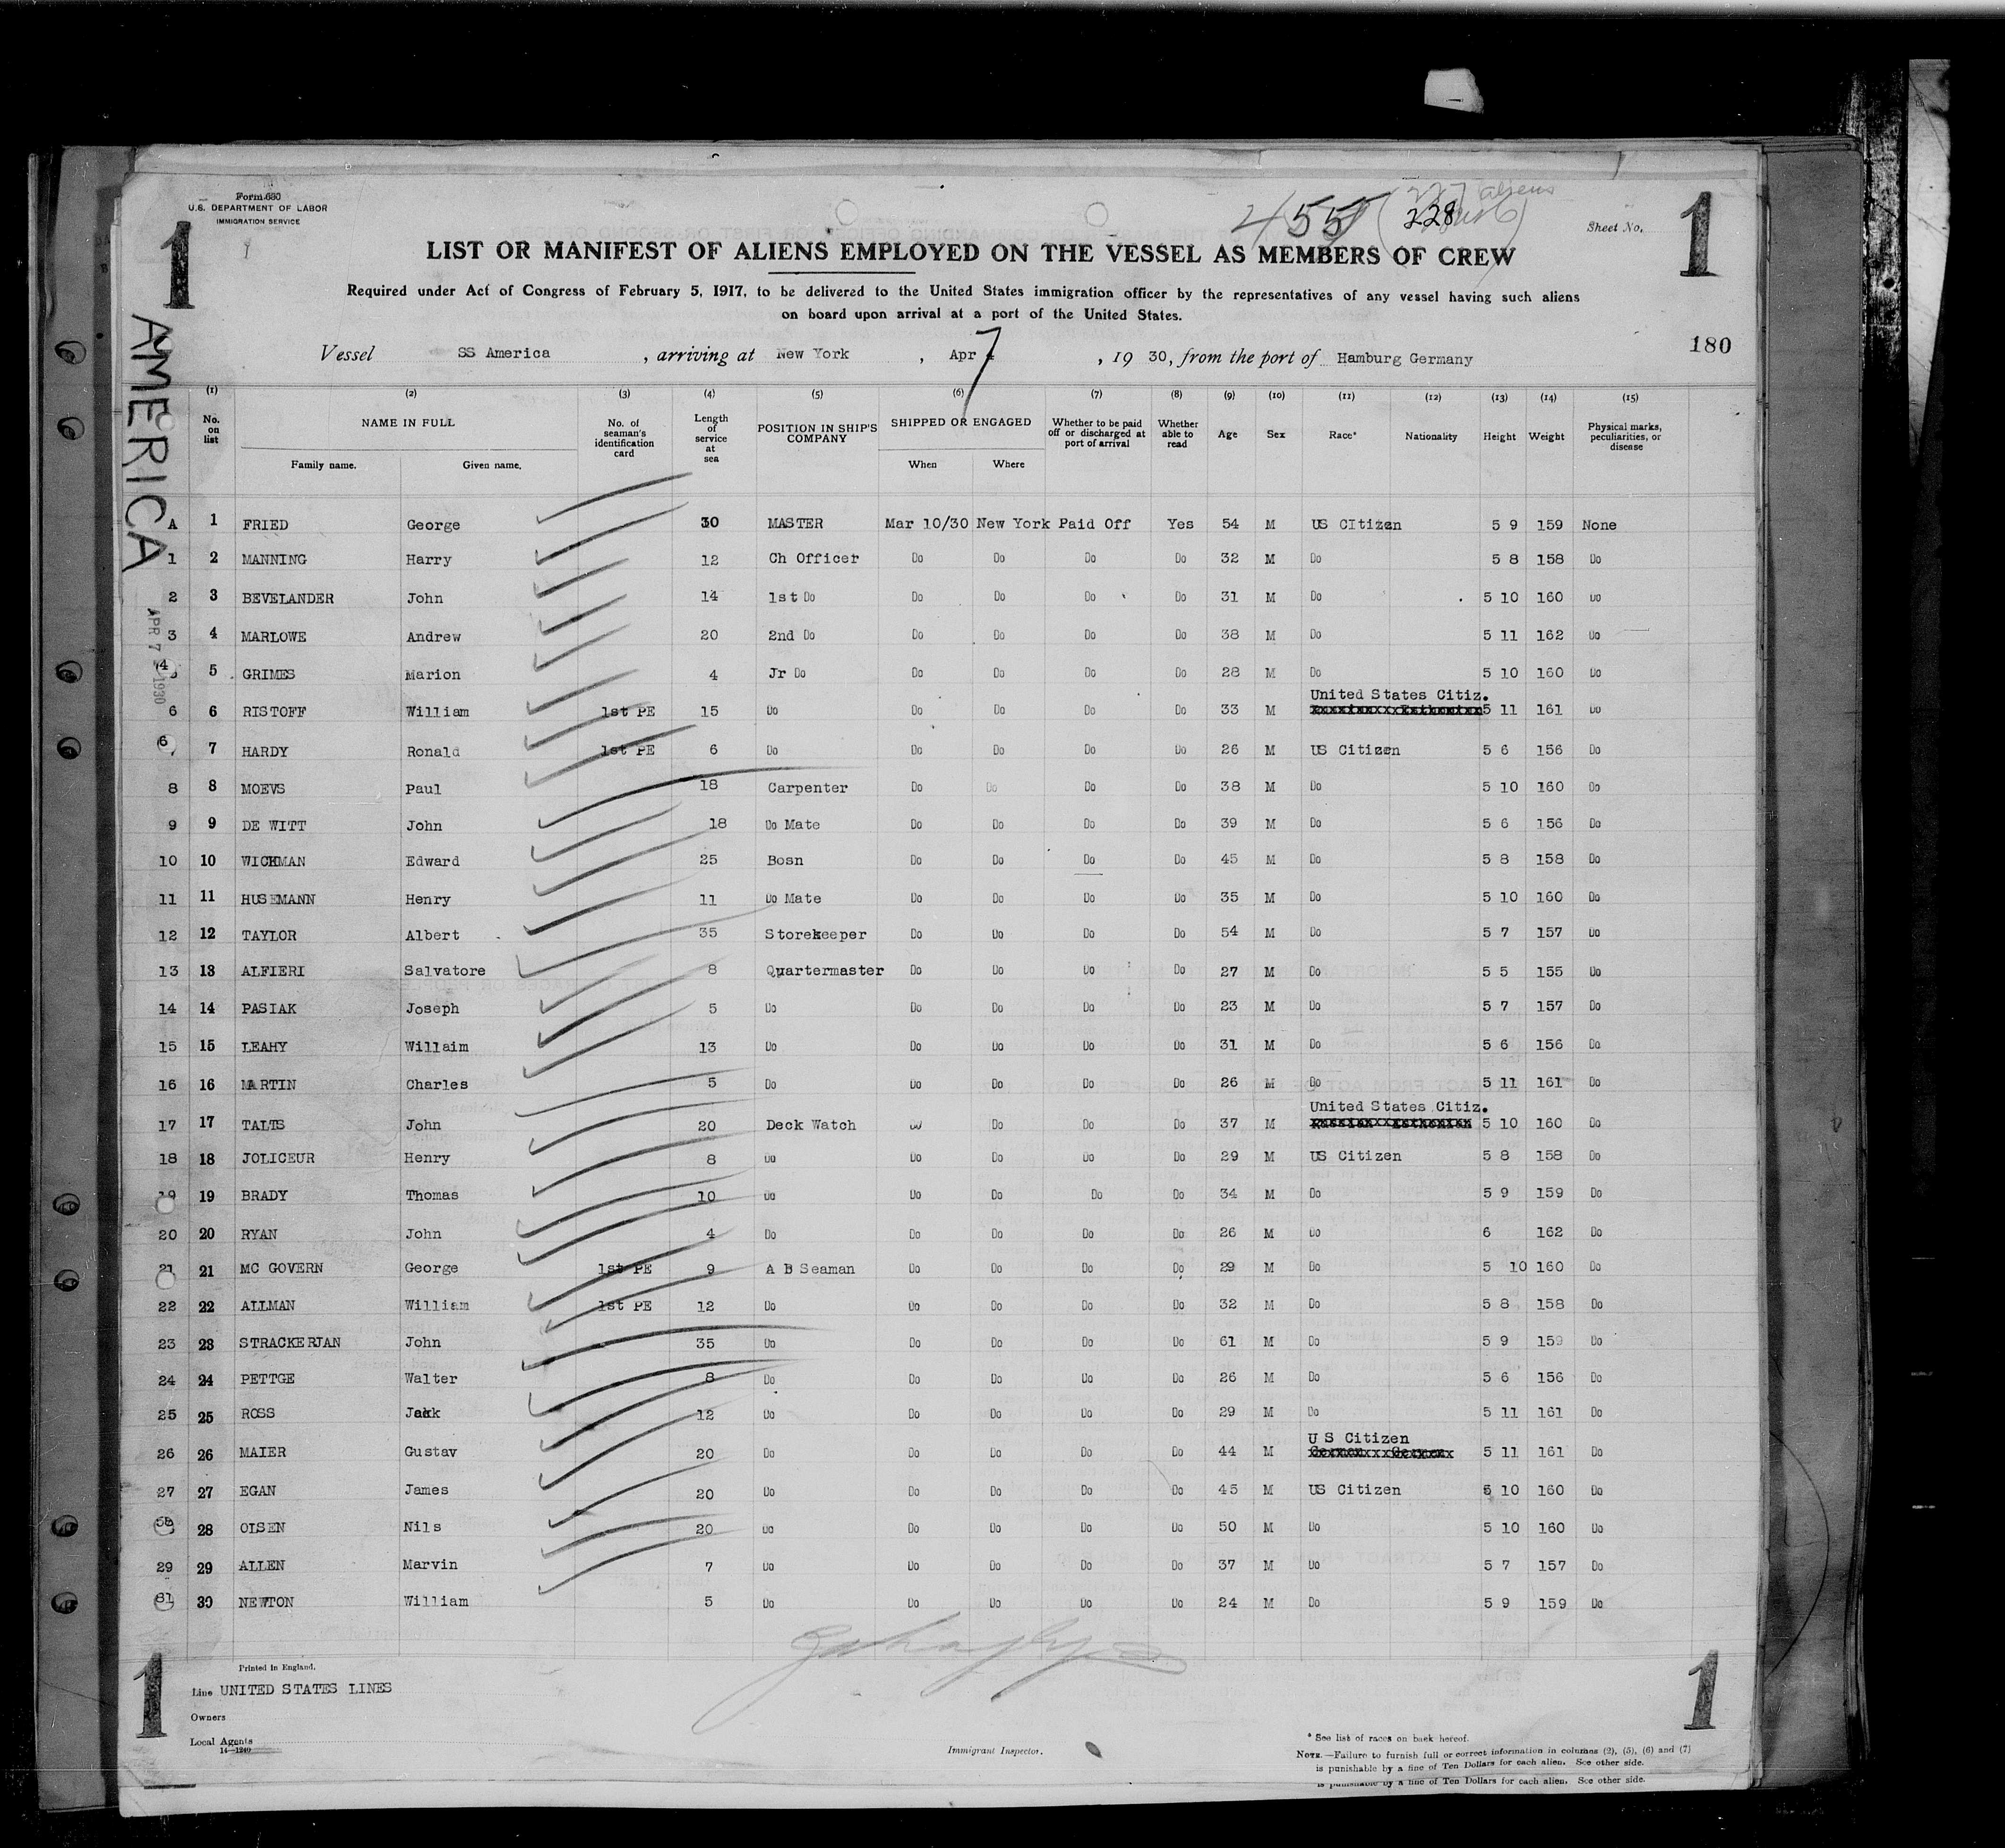 Form 630
U.S. DEPARTMENT OF LABOR
IMMIGRATION SERVICE
1
1
455
228
aliens
Sheet No.
LIST OR MANIFEST OF ALIENS EMPLOYED ON THE VESSEL AS MEMBERS OF CREW
Required under Act of Congress of February 5, 1917, to be delivered to the United States immigration officer by the representatives of any vessel having such aliens
on board upon arrival at a port of the United States.
180
Vessel SS America , arriving at New York , Apr 7 , 19 30, from the port of Hamburg Germany
AMERICA
APR 7 1930
(1) (2) (3) (4) (5) (6) (7) (8) (9) (10) (11) (12) (13) (14) (15)
No. on list NAME IN FULL Family name. Given name. No. of seaman's identification card Length of service at sea POSITION IN SHIP'S COMPANY SHIPPED OR ENGAGED When Where Whether to be paid off or discharged at port of arrival Whether able to read Age Sex Race* Nationality Height Weight Physical marks, peculiarities, or disease
A 1 FRIED George 30 MASTER Mar 10/30 New York Paid Off Yes 54 M US CItizen 5 9 159 None
1 2 MANNING Harry 12 Ch Officer Do Do Do Do 32 M Do 5 8 158 Do
2 3 BEVELANDER John 14 1st Do Do Do Do Do 31 M Do 5 10 160 Do
3 4 MARLOWE Andrew 20 2nd Do Do Do Do Do 38 M Do 5 11 162 Do
4 5 GRIMES Marion 4 Jr Do Do Do Do Do 28 M Do 5 10 160 Do
United States Citiz.
6 6 RISTOFF William 1st PE 15 Do Do Do Do Do 33 M 5 11 161 Do
6 7 HARDY Ronald 1st PE 6 Do Do Do Do Do 26 M US Citizen 5 6 156 Do
8 8 MOEVS Paul 18 Carpenter Do Do Do Do 38 M Do 5 10 160 Do
9 9 DE WITT John 18 Do Mate Do Do Do Do 39 M Do 5 6 156 Do
10 10 WICHMAN Edward 25 Bosn Do Do Do Do 45 M Do 5 8 158 Do
11 11 HUSEMANN Henry 11 Do Mate Do Do Do Do 35 M Do 5 10 160 Do
12 12 TAYLOR Albert 35 Storekeeper Do Do Do Do 54 M Do 5 7 157 Do
13 13 ALFIERI Salvatore 8 Quartermaster Do Do Do Do 27 M Do 5 5 155 Do
14 14 PASIAK Joseph 5 Do Do Do Do Do 23 M Do 5 7 157 Do
15 15 LEAHY Willaim 13 Do Do Do Do Do 31 M Do 5 6 156 Do
16 16 MARTIN Charles 5 Do Do Do Do Do 26 M Do 5 11 161 Do
United States Citiz.
17 17 TALTS John 20 Deck Watch Do Do Do Do 37 M 5 10 160 Do
18 18 JOLICEUR Henry 8 Do Do Do Do Do 29 M US Citizen 5 8 158 Do
19 19 BRADY Thomas 10 Do Do Do Do Do 34 M Do 5 9 159 Do
20 20 RYAN John 4 Do Do Do Do Do 26 M Do 6 162 Do
21 21 MC GOVERN George 1st PE 9 A B Seaman Do Do Do Do 29 M Do 5 10 160 Do
22 22 ALLMAN William 1st PE 12 Do Do Do Do Do 32 M Do 5 8 158 Do
23 23 STRACKERJAN John 35 Do Do Do Do Do 61 M Do 5 9 159 Do
24 24 PETTGE Walter 8 Do Do Do Do Do 26 M Do 5 6 156 Do
25 25 ROSS Jakk 12 Do Do Do Do Do 29 M Do 5 11 161 Do
U S Citizen
26 26 MAIER Gustav 20 Do Do Do Do Do 44 M German German 5 11 161 Do
27 27 EGAN James 20 Do Do Do Do Do 45 M US Citizen 5 10 160 Do
28 OLSEN Nils 20 Do Do Do Do Do 50 M Do 5 10 160 Do
29 29 ALLEN Marvin 7 Do Do Do Do Do 37 M Do 5 7 157 Do
31 30 NEWTON William 5 Do Do Do Do Do 24 M Do 5 9 159 Do
1
1
Printed in England.
Line UNITED STATES LINES
Owners
Local Agents
14—1240
Immigrant Inspector.
* See list of races on back hereof.
NOTE.—Failure to furnish full or correct information in columns (2), (5), (6) and (7)
is punishable by a fine of Ten Dollars for each alien. See other side.
is punishable by a fine of Ten Dollars for each alien. See other side.